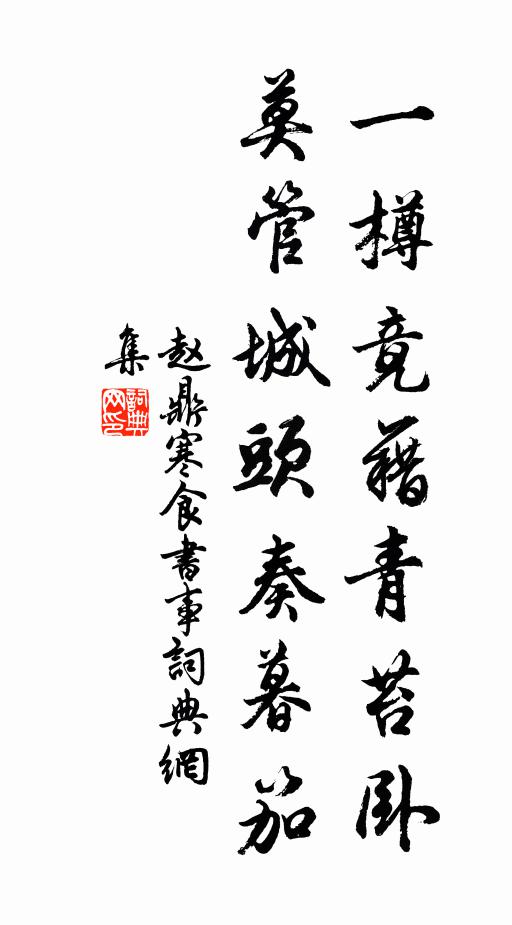 一樽竟藉青苔卧
莫管城頭奏暮笳
赵鼎寒食書事詞典網
集
詞典
网印